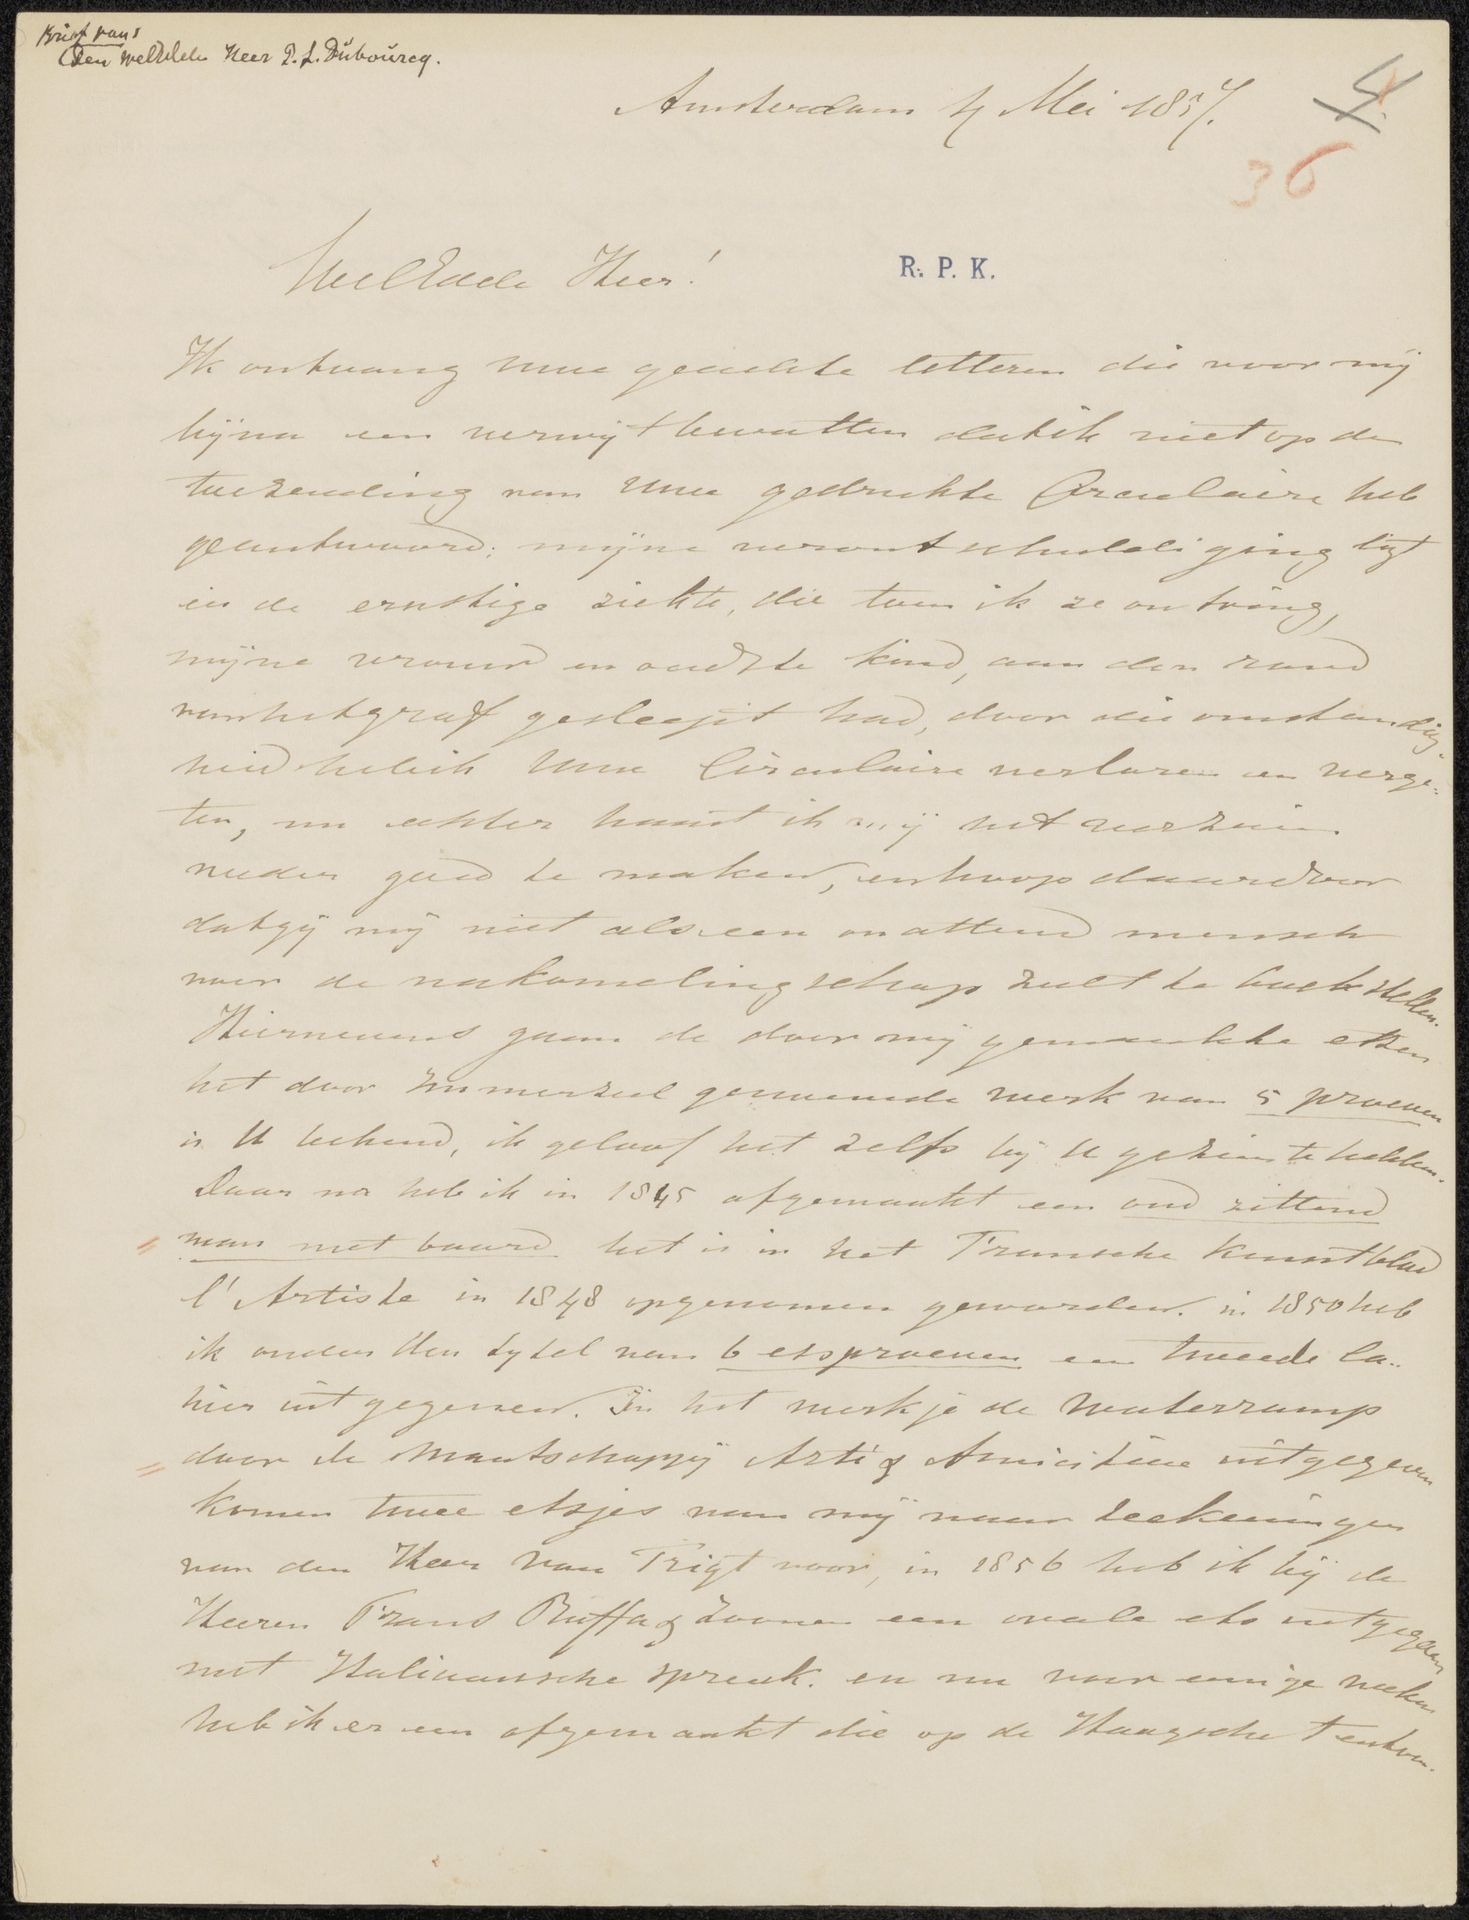 Brief van
den WelEdele Heer P. L. Dubourcq.
Amsterdam 4 Mei 1857.
4.
36
WelEdele Heer!
R. P. K.
Ik ontvang Uwe geachte letteren die voor mij
bijna een verwijt bevatten dat ik niet op de
toezending van Uwe gedrukte Circulaire heb
geantwoord; mijne verontschuldiging ligt
in de ernstige ziekte, die toen ik ze ontving,
mijne vrouw en oudste kind, aan den rand
van het graf gesleept had, door die omstandig-
heid heb ik Uwe Circulaire verloren en verge-
ten, nu echter haast ik mij het verzuim
weder goed te maken, en hoop daardoor
dat gij mij niet als een onattend mensch
voor de nakomelingschap zult te boek stellen.
Hiernevens gaan de door mij gemaakte etsen
het door Immerzeel genoemde werk van 5 proeven
is U bekend, ik geloof het zelfs bij U gezien te hebben.
Daar na heb ik in 1845 afgemaakt een oud zittend
man met baard het is in het Fransche Kunstblad
l'Artiste in 1848 opgenomen geworden. in 1850 heb
ik onder den tytel van 6 etsproeven een tweede ca-
hier uitgegeven. In het werkje de Watersramp
door de Maatschappij Arti & Amicitiae uitgegeven
komen twee etsjes van mij naar teekeningen
van den Heer van Trigt voor, in 1856 heb ik bij de
Heeren Frans Buffa & Zoonen een ovale ets uitgegeven
met Italiaansche spreuk. en nu voor eenige weken
heb ik er een afgemaakt die op de Haagsche Tentoon-